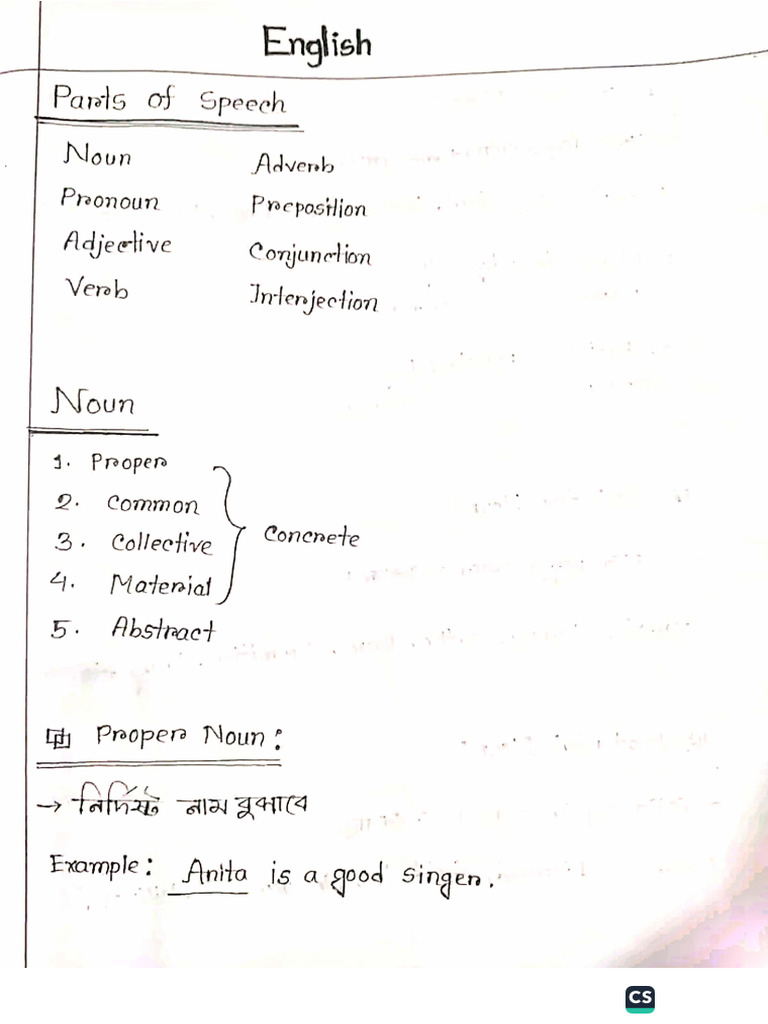 English
Parts of Speech
Noun Adverb
Pronoun Preposition
Adjective Conjunction
Verb Interjection
Noun
1. Proper
2. Common
3. Collective
Concrete
4. Material
5. Abstract
Proper Noun:
→ নির্দিষ্ট নাম বুঝাবে
Example: Anita is a good singer.
CS